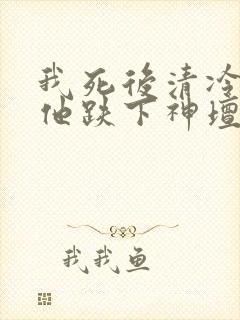 我死后清冷
他跌下神壇
我我鱼